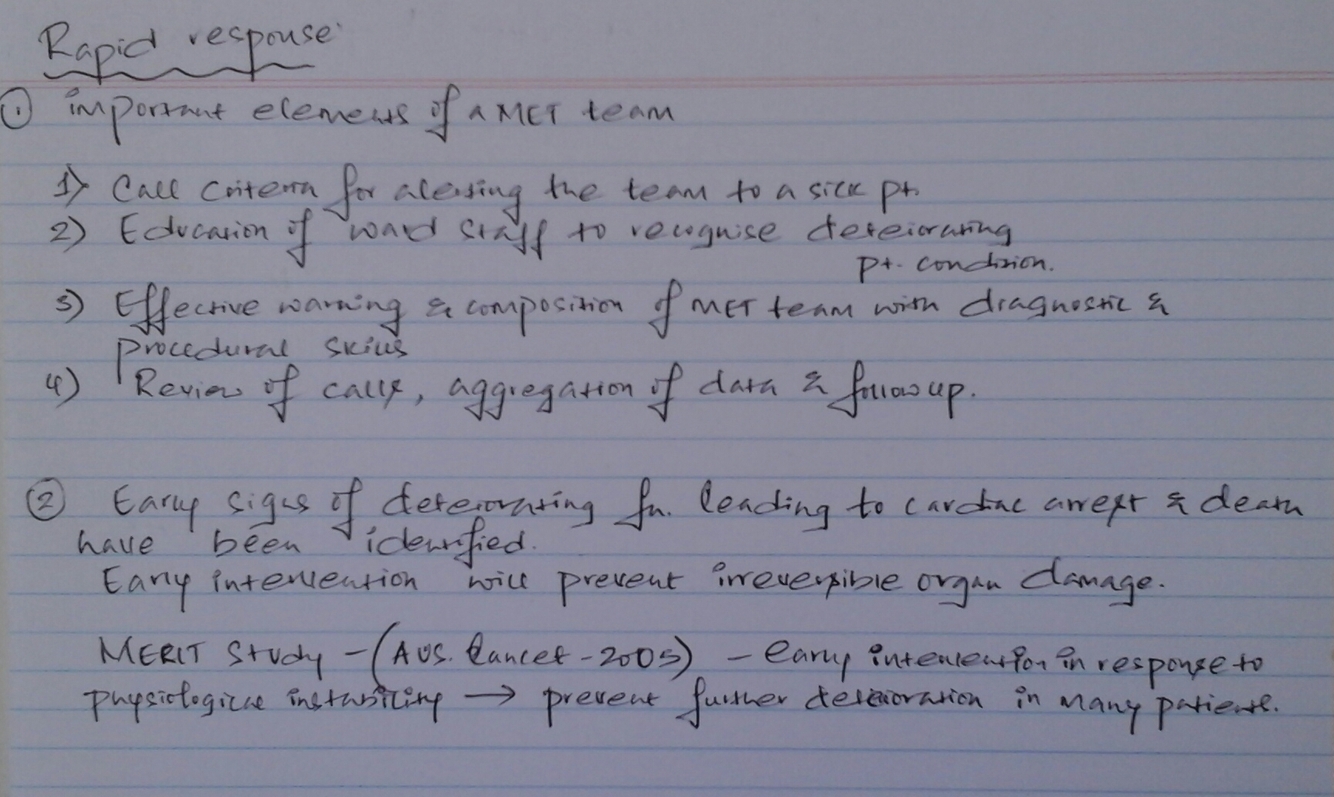 Rapid response
① important elements of a MET team
1) Call criteria for alerting the team to a sick pt.
2) Education of ward staff to recognise deteriorating
pt. condition.
3) Effective warning & composition of MET team with diagnostic &
procedural skills
4) Review of calls, aggregation of data & followup.
② Early signs of deteriorating fn. leading to cardiac arrest & death
have been identified.
Early intervention will prevent irreversible organ damage.
MERIT Study - (AUS. Lancet - 2005) - early intervention in response to
physiological instability → prevent further deterioration in many patients.